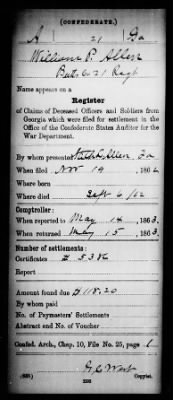 (CONFEDERATE.)
A 21 Ga
William P. Allen
21 Regt
Name appears on a
Register
of Claims of Deceased Officers and Soldiers from
Georgia which were filed for settlement in the
Office of the Confederate States Auditor for the
War Department.
By whom presented Allen,
When filed Nov 19, 1862
Where born
Where died Sept 6/62
Comptroller:
When reported to May 14, 1863.
When returned May 15, 1863.
Number of settlements:
Certificates # 5386
Report
Amount found due $118.20
By whom paid
No. Paymasters' Settlements
Abstract and No. of Voucher
Confed. Arch., Chap. 10, File No. 25, page 1
G. C. West
Copyist.